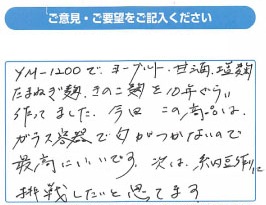 ご意見・ご要望をご記入ください
YM-1200で、ヨーグルト、甘酒、塩麹
たまねぎ麹、きのこ麹を10年ぐらい
作ってました。今回この商品は、
ガラス容器で匂がつかないので
最高にいいです。次は、納豆作りに
挑戦したいと思てます